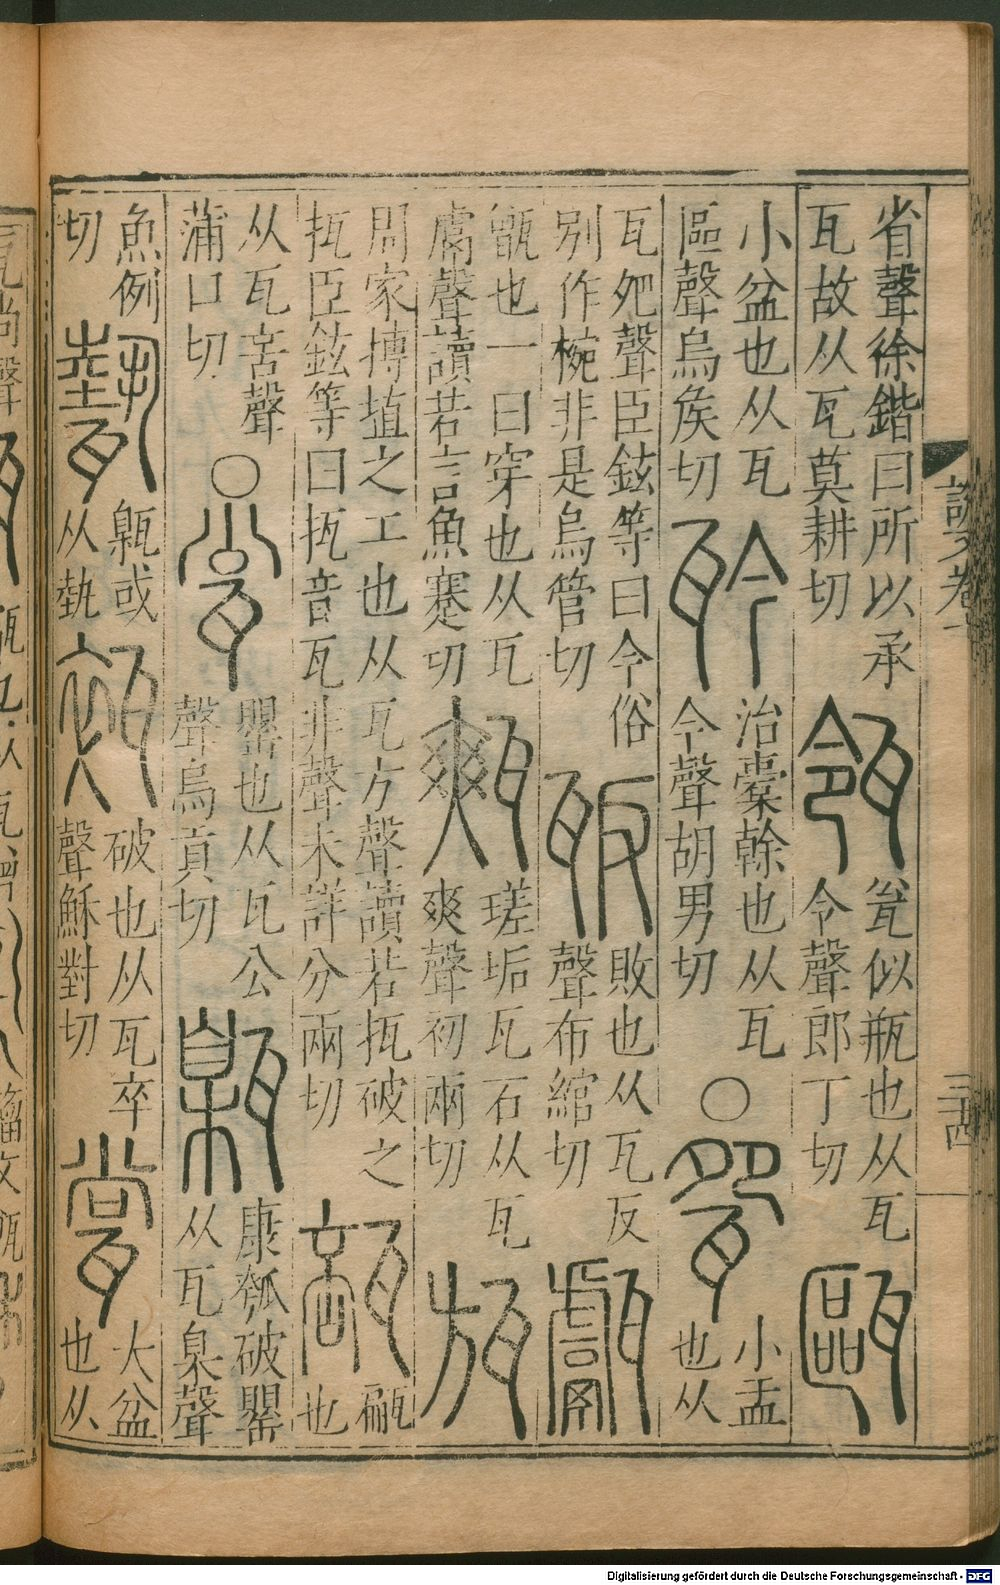 說文卷十
三十四
省聲徐鍇曰所以承
瓦故从瓦莫耕切
瓴
瓮似瓶也从瓦
令聲郎丁切
甌
小盆也从瓦
區聲烏矦切
治橐榦也从瓦
今聲胡男切
○
㼝
小盂
也从
瓦夗聲臣鉉等曰今俗
別作椀非是烏管切
瓪
敗也从瓦反
聲布綰切
甗
甑也一曰穿也从瓦
鬳聲讀若言魚蹇切
㼽
瑳垢瓦石从瓦
爽聲初兩切
瓬
周家摶埴之工也从瓦方聲讀若抵破之
抵臣鉉等曰抵音瓦非聲未詳分兩切
瓿
㼶
也
从瓦咅聲
蒲口切
○
瓮
罌也从瓦公
聲烏貢切
甈
康瓠破罌
从瓦臬聲
魚例
切
甈或
从埶
破也从瓦卒
聲穌對切
瓽
大盆
也从
Digitalisierung gefördert durch die Deutsche Forschungsgemeinschaft - DFG